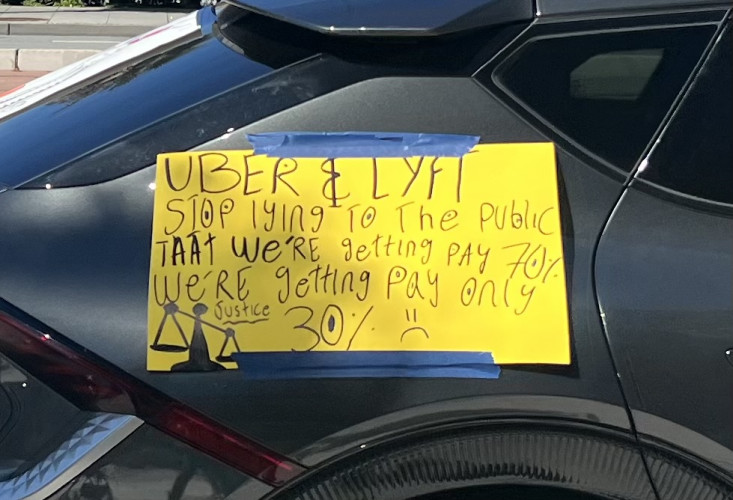 UBER & LYFT
STOP lying TO The PUBLIC
THAT WE'RE getting PAY 70%
WE'RE getting Pay only
Justice 30% :(